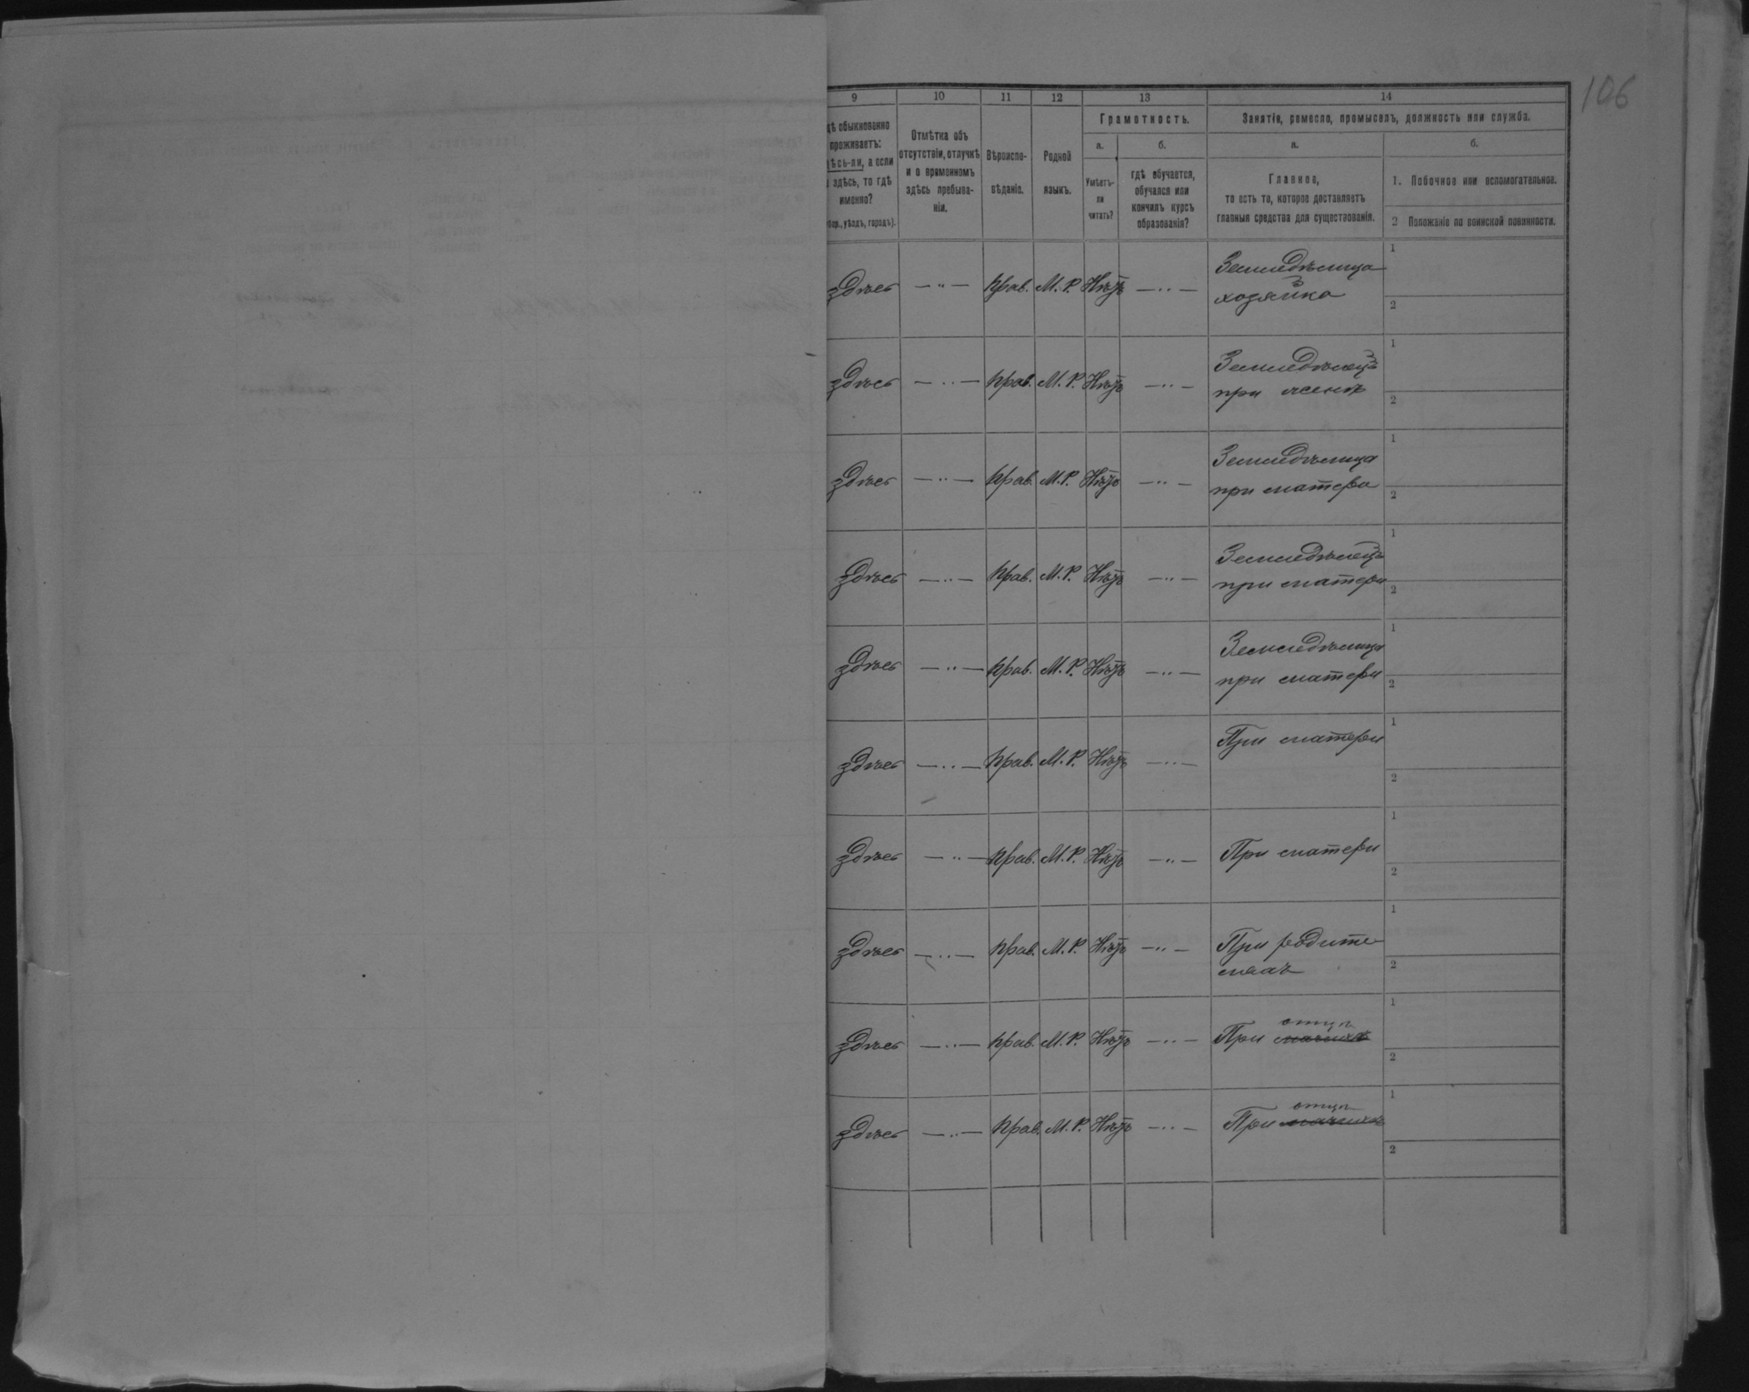 106
9 10 11 12 13 14
Грамотность. Занятіе, ремесло, промыселъ, должность или служба.
обыкновенно
проживаетъ:
а если
здѣсь, то гдѣ
именно?
уѣздъ, городъ).
Отмѣтка объ
отсутствіи, отлучкѣ
и о временномъ
здѣсь пребыва-
ніи.
Вѣроиспо-
вѣданіе.
Родной
языкъ.
а.
Умѣетъ-
ли
читать?
б.
гдѣ обучается,
обучался или
кончилъ курсъ
образованія?
а.
Главное,
то есть то, которое доставляетъ
главныя средства для существованія.
б.
1. Побочное или вспомогательное.
2 Положеніе по воинской повинности.
здѣсь — " — Прав. М. Р. Нѣтъ — " — Земледѣлица 1
хозяйка 2
здѣсь — " — Прав. М. Р. Нѣтъ — " — Земледѣлецъ 1
при женѣ 2
здѣсь — " — Прав. М. Р. Нѣтъ — " — Земледѣлица 1
при матери 2
здѣсь — " — Прав. М. Р. Нѣтъ — " — Земледѣлецъ 1
при матери 2
здѣсь — " — Прав. М. Р. Нѣтъ — " — Земледѣлица 1
при матери 2
здѣсь — " — Прав. М. Р. Нѣтъ — " — При матери 1
2
здѣсь — " — Прав. М. Р. Нѣтъ — " — При матери 1
2
здѣсь — " — Прав. М. Р. Нѣтъ — " — При родите 1
ляхъ 2
здѣсь — " — Прав. М. Р. Нѣтъ — " — При отцѣ 1
2
здѣсь — " — Прав. М. Р. Нѣтъ — " — При отцѣ 1
2